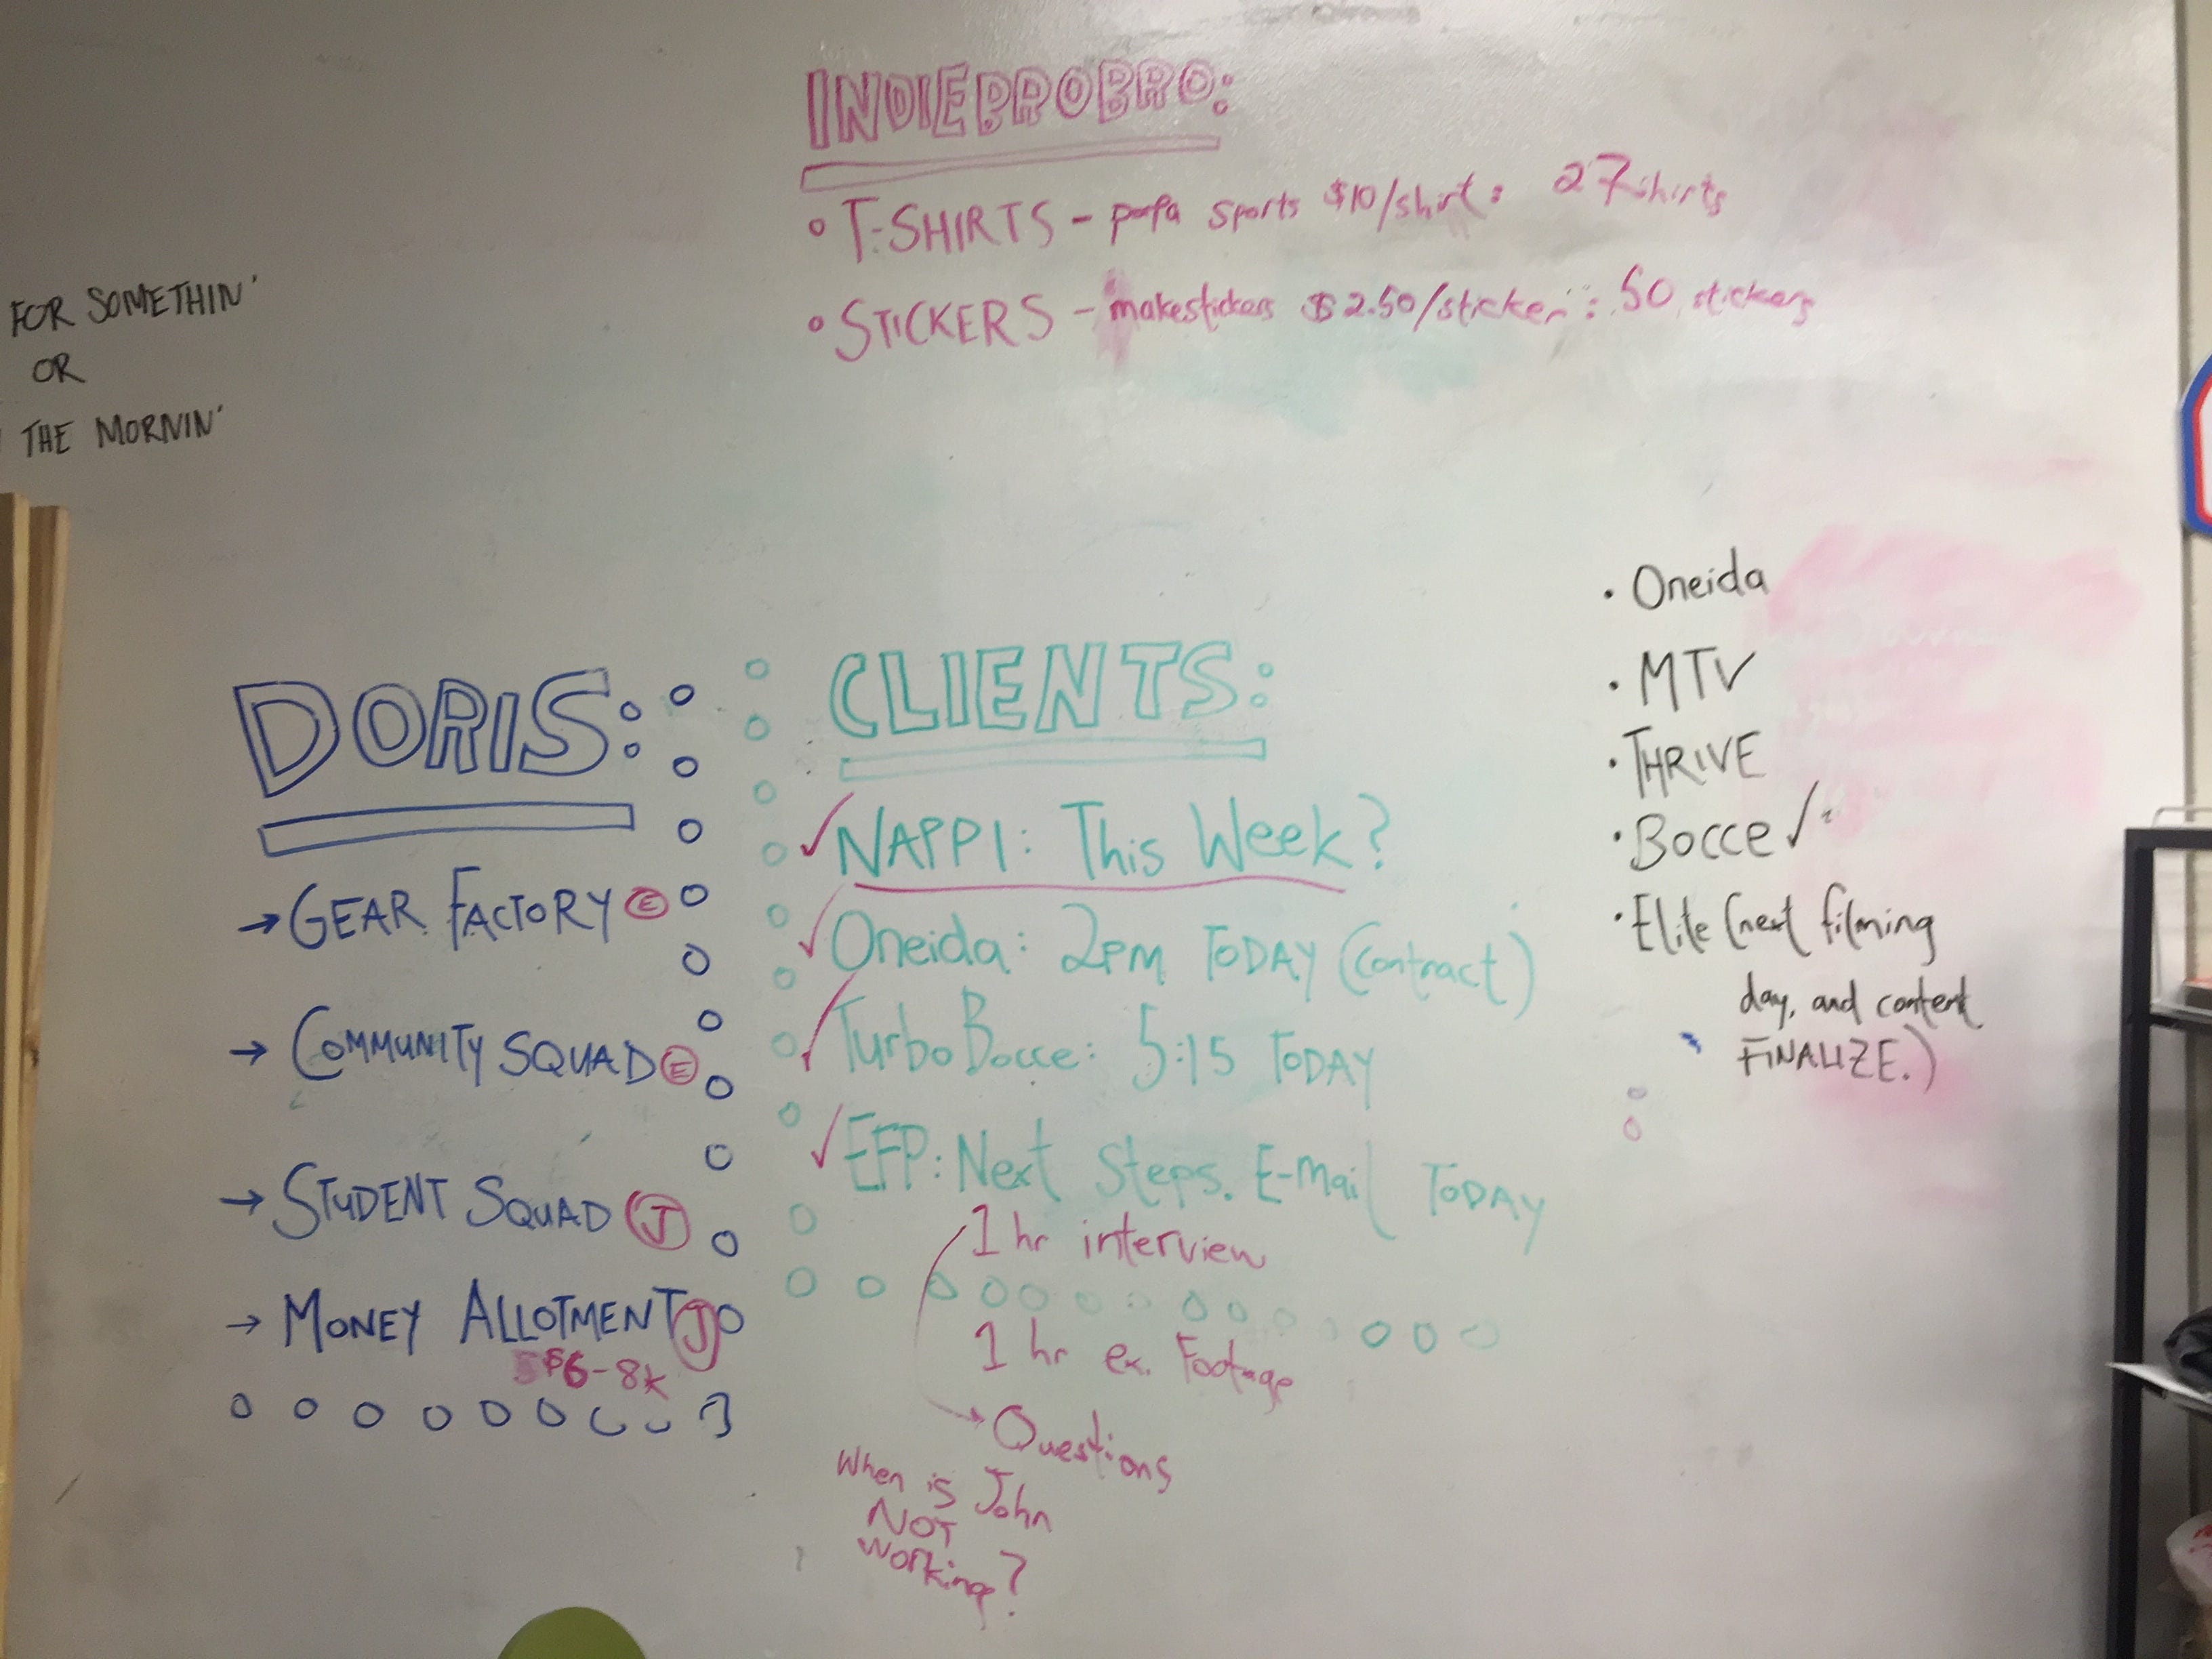 INDIEPROBRO:
° T-SHIRTS - papa sports $10/shirt: 27 shirts
° STICKERS - makestickers $2.50/sticker: 50 stickers
FOR SOMETHIN'
OR
THE MORNIN'
DORIS:
→ GEAR FACTORY Ⓔ
→ COMMUNITY SQUAD Ⓔ
→ STUDENT SQUAD Ⓙ
→ MONEY ALLOTMENT Ⓙ
$6-8k
CLIENTS:
✓ NAPPI: This Week?
✓ Oneida: 2PM TODAY (Contract)
✓ Turbo Bocce: 5:15 TODAY
✓ EFP: Next Steps. E-mail TODAY
1 hr interview
1 hr ex. Footage
→ Questions
When is John
NOT
working?
• Oneida
• MTV
• THRIVE
• Bocce ✓
• Elite (next filming
day, and content
FINALIZE.)